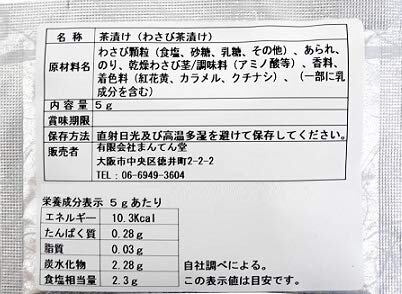 名　称　茶漬け（わさび茶漬け）
原材料名　わさび顆粒（食塩、砂糖、乳糖、その他）、あられ、
のり、乾燥わさび茎/調味料（アミノ酸等）、香料、
着色料（紅花黄、カラメル、クチナシ）、（一部に乳
成分を含む）
内容量　5ｇ
賞味期限
保存方法　直射日光及び高温多湿を避けて保存してください。
販売者　有限会社まんてん堂
大阪市中央区徳井町2-2-2
TEL：06-6949-3604
栄養成分表示　5ｇあたり
エネルギー　10.3Kcal
たんぱく質　0.28g
脂質　0.03g
炭水化物　2.28g　自社調べによる。
食塩相当量　2.3g　この表示値は目安です。